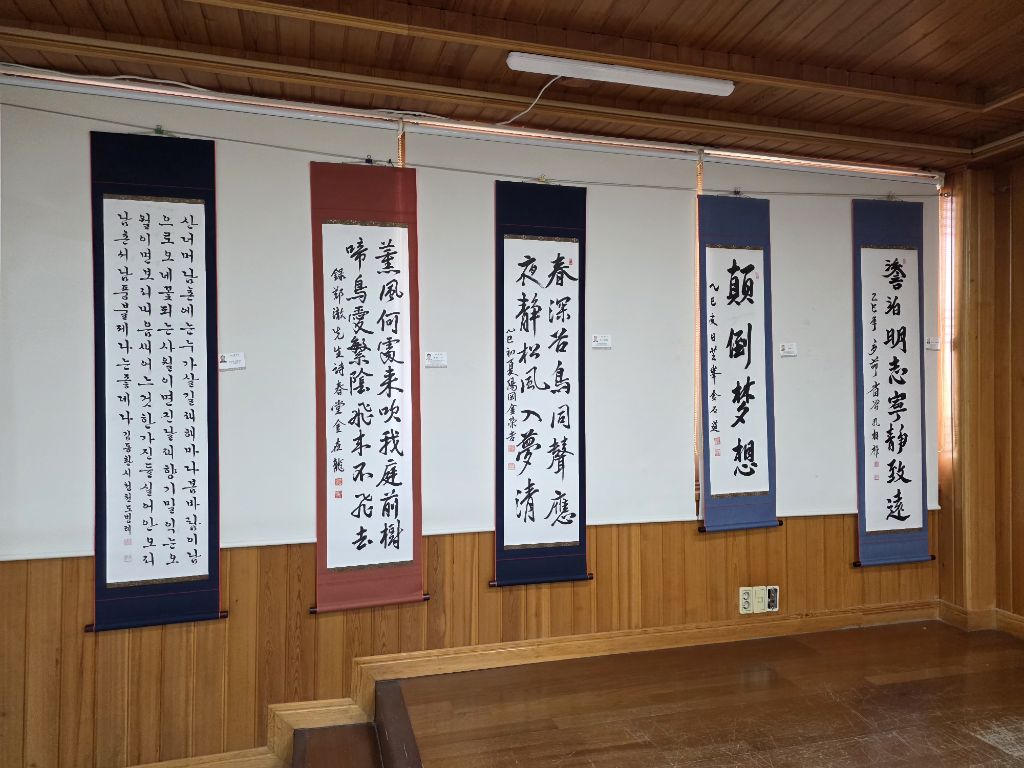 산너머남촌에는누가살길래해마다봄바람이남
으로오네꽃피는사월이면진달래향기밀익는오
월이면보리내음새어느것한가진들실어안오리
남촌서남풍불제나는좋데나 김동환시
薰風何處来吹我庭前樹
啼鳥愛繁陰飛来不飛去
錄鄭澈先生詩春堂金在龍
春深谷鳥同聲應
夜静松風入夢清
乙巳初夏陽園金榮
顛倒夢想
乙巳夏日芝峯金石
澹泊明志寧靜致遠
乙巳年